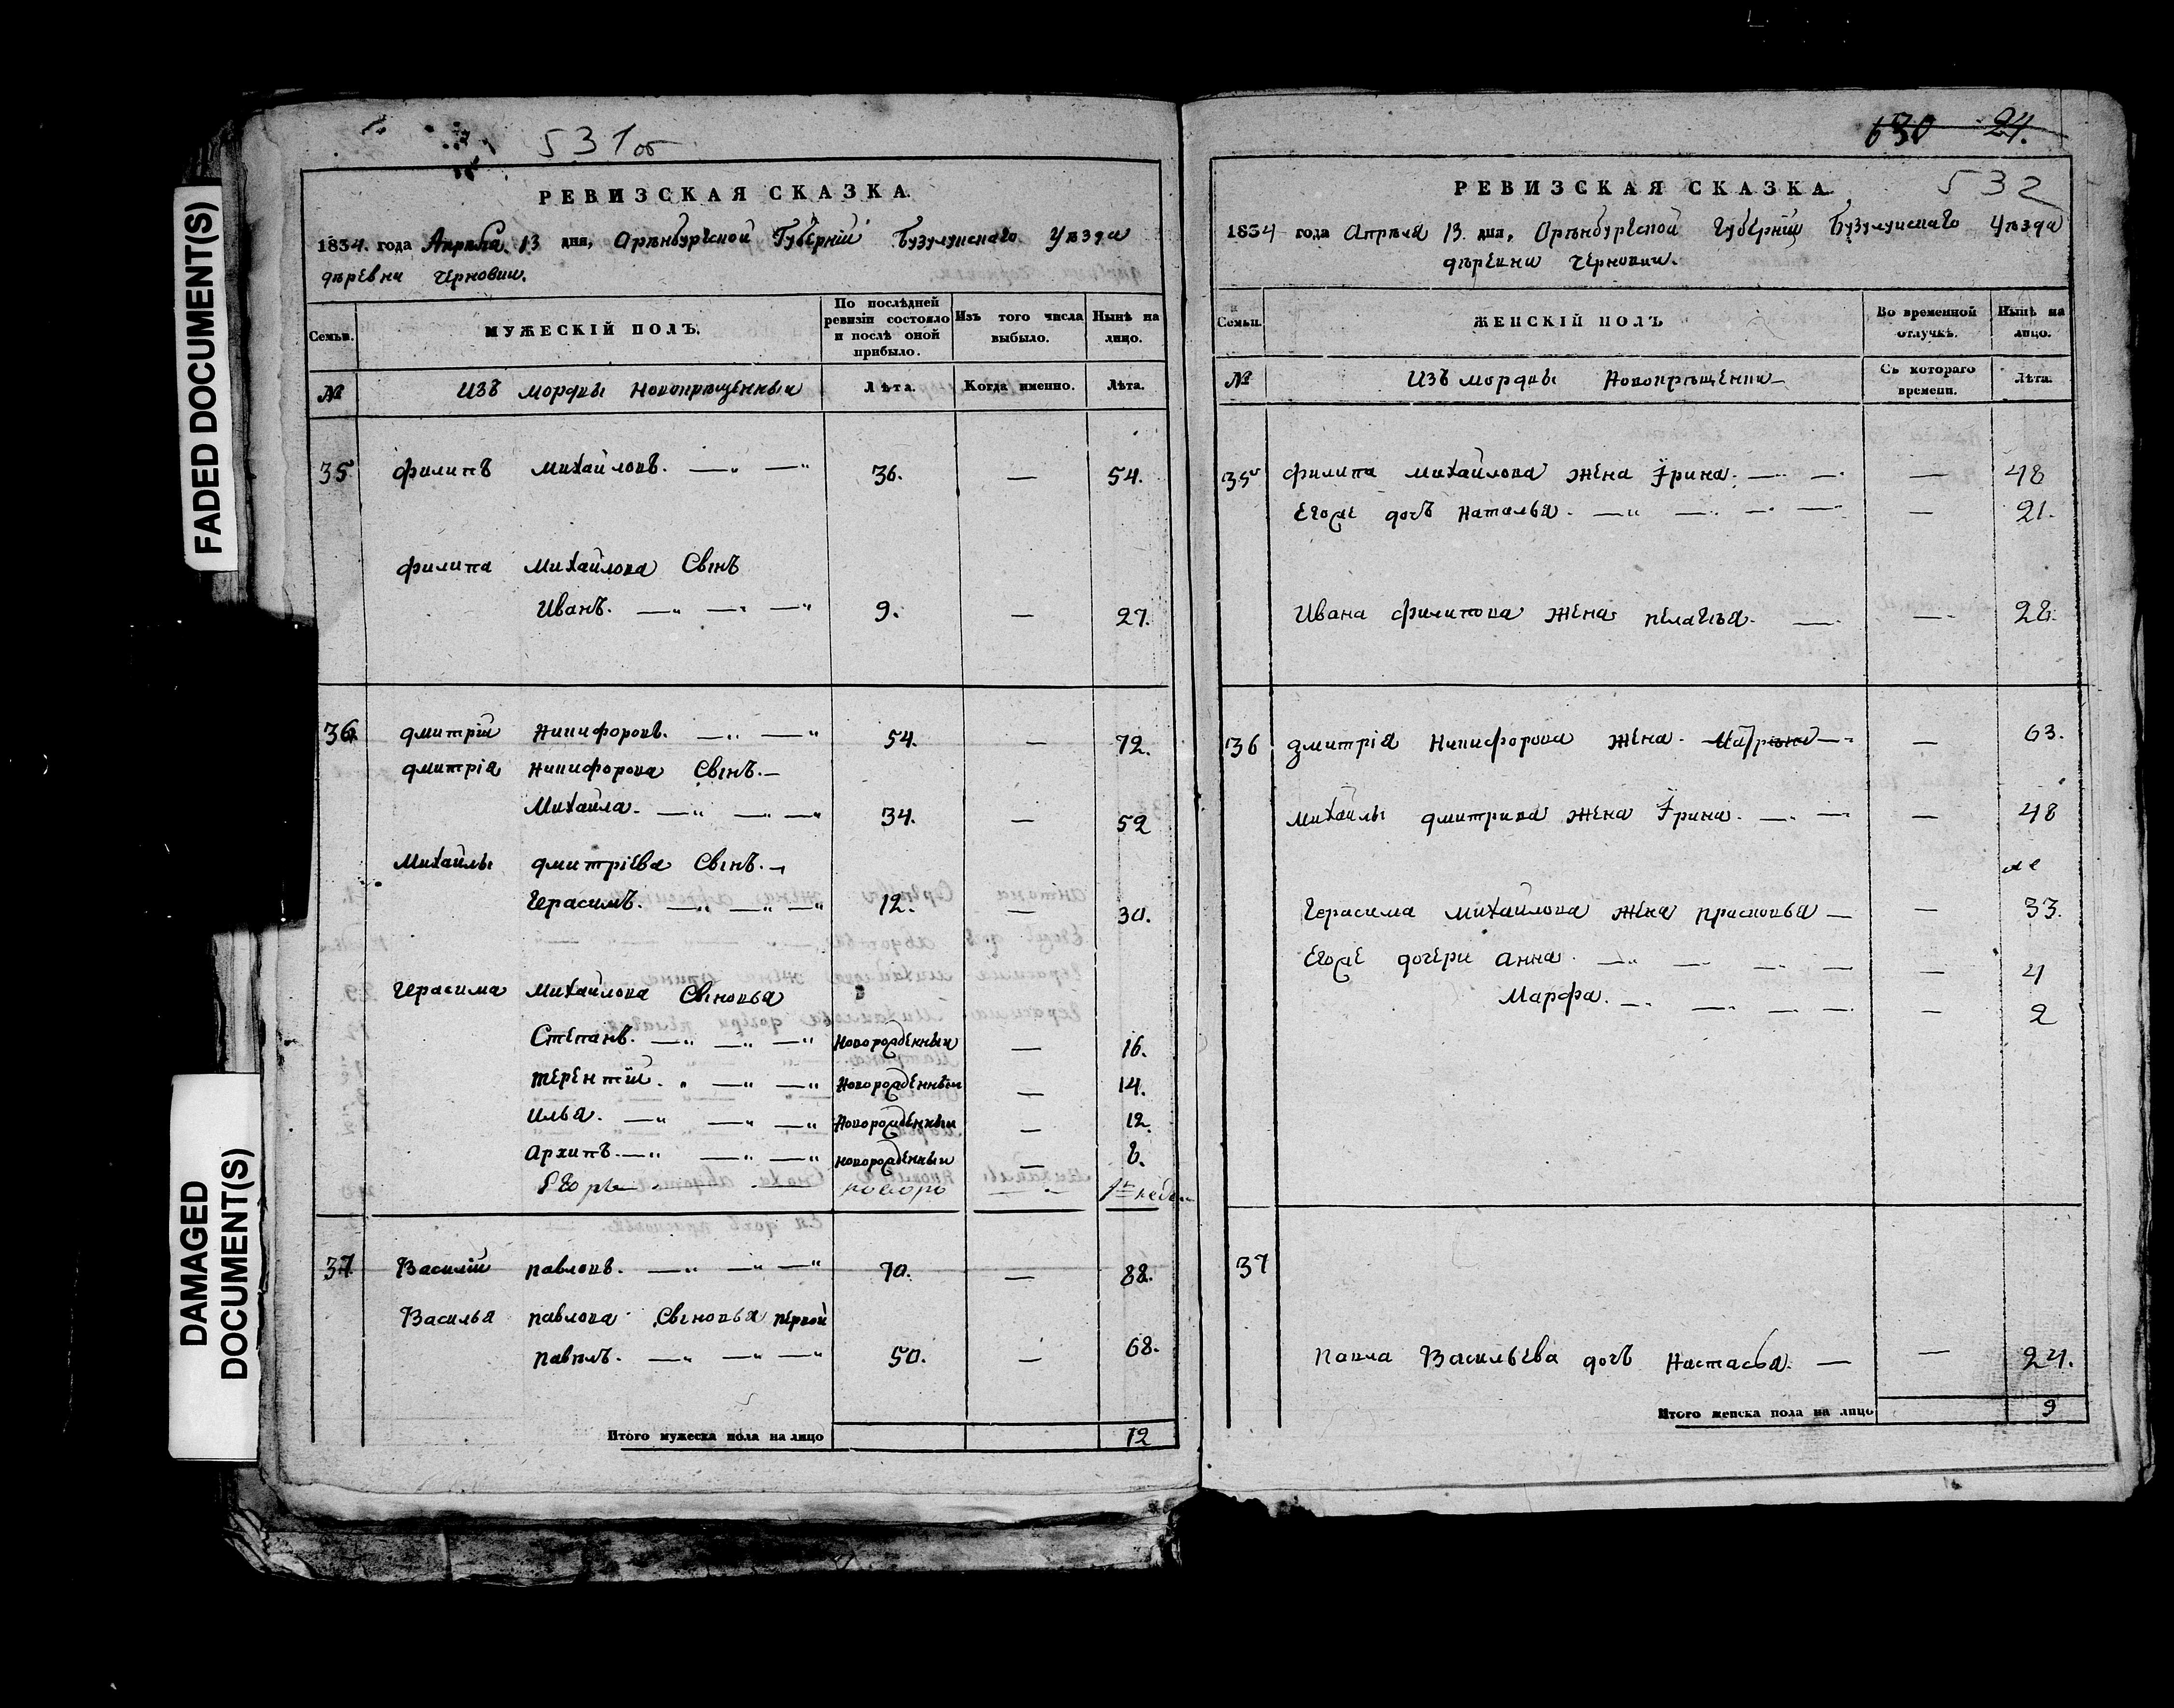 FADED DOCUMENT(S)
DAMAGED DOCUMENT(S)
531 об
РЕВИЗСКАЯ СКАЗКА.
1834. года Апреля 13 дня, Оренбургской Губернiи Бузулукскаго Уѣзда
дѣревни Черновки.
Семьи. МУЖЕСКІЙ ПОЛЪ. По послѣдней ревизіи состояло и послѣ оной прибыло. Изъ того числа выбыло. Нынѣ на лицо.
№ Изъ мордвы Новокрѣщенныи Лѣта. Когда именно. Лѣта.
35 филипъ михайловъ. 36. — 54.
филипа Михайлова Сынъ
Иванъ. 9. — 27.
36 дмитрiй Никифоровъ. 54. — 72.
дмитрiя Никифорова Сынъ.
Михайла. 34. — 52
Михайлы дмитрiева Сынъ.
Герасимъ. 12. — 30.
Герасима Михайлова Сыновья
Степанъ. Новорожденный — 16.
терентiй. Новорожденный — 14.
илья. Новорожденный — 12.
архипъ. новорожденный — 6.
Егоръ новоро —
37 Василiй павловъ. 70. — 88.
Василья павлова Сыновья первой
павелъ. 50. — 68.
Итого мужеска пола на лицо 12
630 24.
532
РЕВИЗСКАЯ СКАЗКА
1834 года апреля 13 дня, Оренбургской Губернiи Бузулукскаго Уѣзда
дѣревни Черновки.
Семьи. ЖЕНСКІЙ ПОЛЪ Во временной отлучкѣ. Нынѣ на лицо.
№ Изъ мордвы Новокрѣщенни Съ котораго времени. Лѣта.
35 филипа михайлова жена Iрина. — 48
Егоже дочь наталья. — 21.
Ивана филипова жена пелагея. — 28.
36 дмитрiя Никифорова жена — 63.
михайлы дмитрива жена Iрина. — 48
Герасима михайлова жена прасковья — 33.
Егоже дочери анна. — 4
Марфа. — 2
37
павла Васильева дочь настасья. — 24.
Итого женска пола на лицо 9